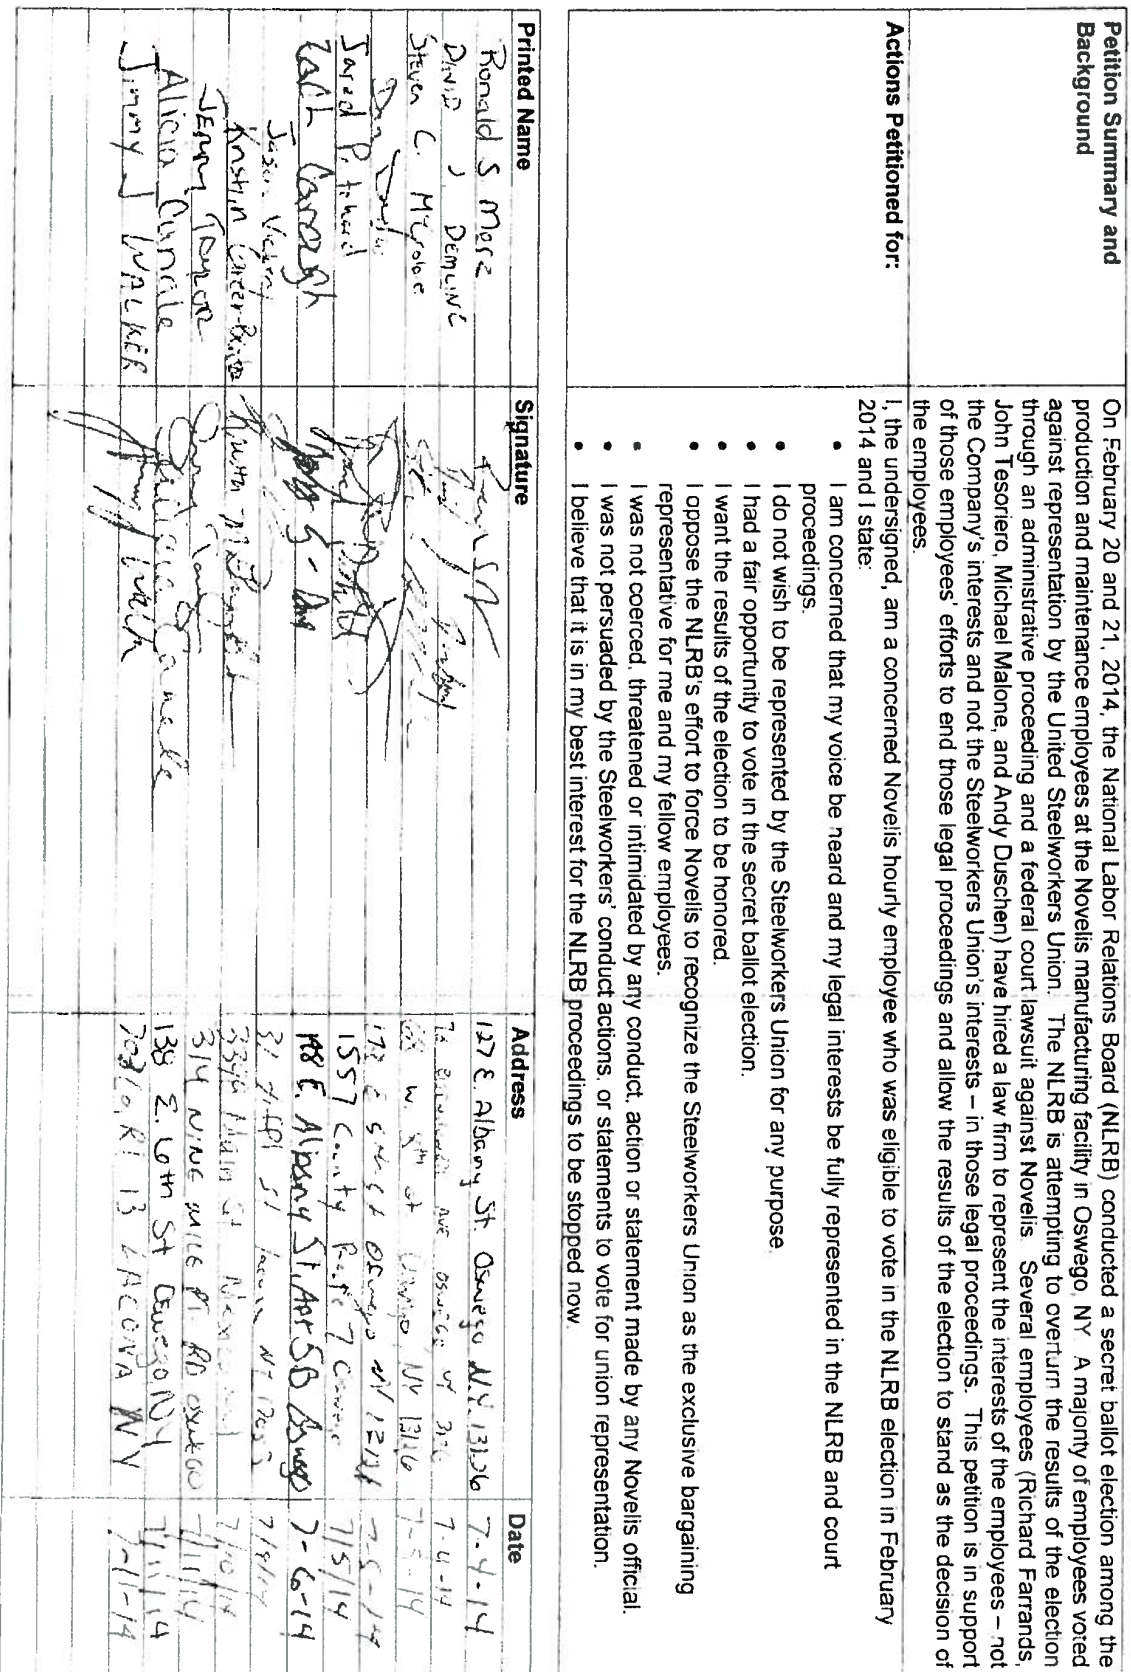 Petition Summary and
Background
On February 20 and 21, 2014, the National Labor Relations Board (NLRB) conducted a secret ballot election among the
production and maintenance employees at the Novelis manufacturing facility in Oswego, NY. A majority of employees voted
against representation by the United Steelworkers Union. The NLRB is attempting to overturn the results of the election
through an administrative proceeding and a federal court lawsuit against Novelis. Several employees (Richard Farrands,
John Tesoriero, Michael Malone, and Andy Duschen) have hired a law firm to represent the interests of the employees – not
the Company's interests and not the Steelworkers Union's interests – in those legal proceedings. This petition is in support
of those employees' efforts to end those legal proceedings and allow the results of the election to stand as the decision of
the employees.
Actions Petitioned for:
I, the undersigned, am a concerned Novelis hourly employee who was eligible to vote in the NLRB election in February
2014 and I state:
• I am concerned that my voice be heard and my legal interests be fully represented in the NLRB and court
proceedings.
• I do not wish to be represented by the Steelworkers Union for any purpose.
• I had a fair opportunity to vote in the secret ballot election.
• I want the results of the election to be honored.
• I oppose the NLRB's effort to force Novelis to recognize the Steelworkers Union as the exclusive bargaining
representative for me and my fellow employees.
• I was not coerced, threatened or intimidated by any conduct, action or statement made by any Novelis official.
• I was not persuaded by the Steelworkers' conduct actions, or statements to vote for union representation.
• I believe that it is in my best interest for the NLRB proceedings to be stopped now.
Printed Name Signature Address Date
Ronald S. 127 E. Albany St. Oswego N.Y. 13126 7-4-14
David J DEMLING Ave Oswego 7-4-14
Steven C. W. St Oswego, NY 13126 7-5-14
Dan Oswego NY 7-5-14
Jared 1557 County Route 7 Oswego 7/5/14
Zach 148 E. Albany St. Apt 5B Oswego 7-6-14
Jason St NY 7/9/14
Kristin Main St Mexico 7/10/14
JERRY TAYLOR 314 NINE MILE PT. RD OSWEGO 7/11/14
Alicia Canale Alicia Canale 138 E. 6th St Oswego NY 7/11/14
Jimmy J WALKER RT 13 LACONA NY 7-11-14